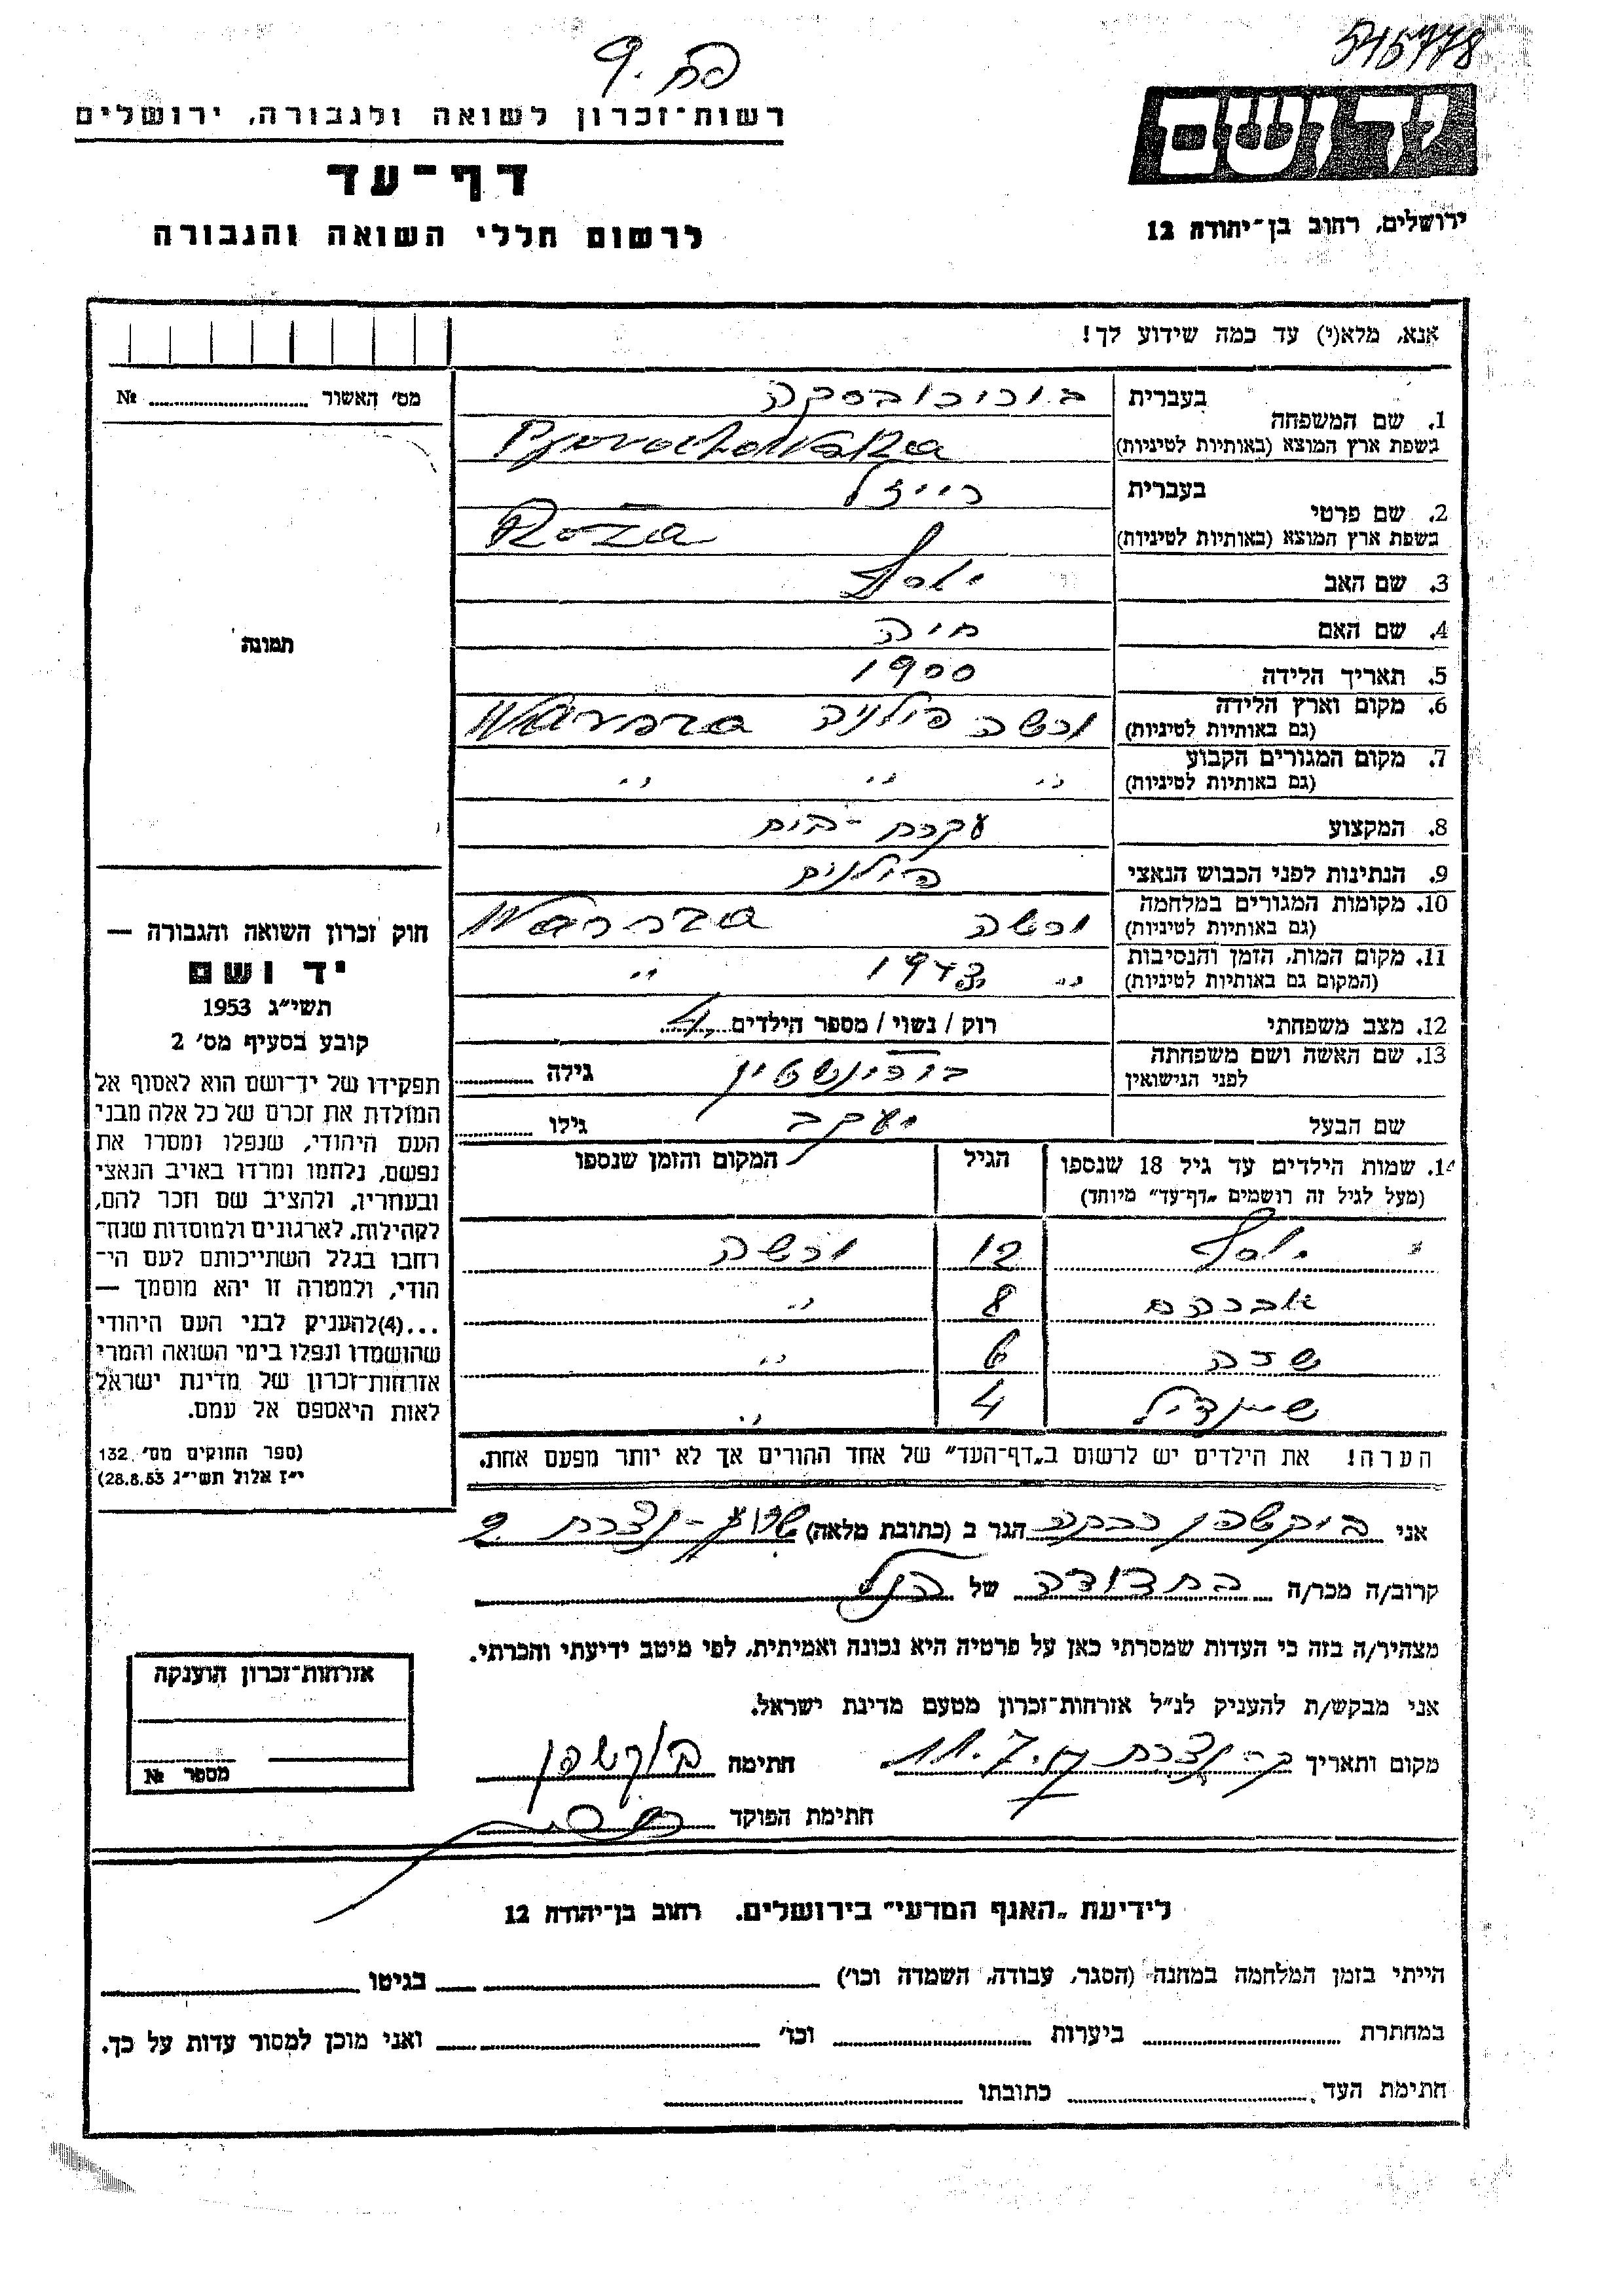 רשות־זכרון לשואה ולגבורה, ירושלים
דף־עד
לרשום חללי השואה והגבורה
ירושלים, רחוב בן־יהודה 12
אנא, מלא(י) עד כמה שידוע לך!
מס' האשור № 
1. שם המשפחה
בעברית
בשפת ארץ המוצא (באותיות לטיניות)
2. שם פרטי
בעברית רייזל
בשפת ארץ המוצא (באותיות לטיניות) Roża
3. שם האב יוסף
4. שם האם חיה
5. תאריך הלידה 1900
6. מקום וארץ הלידה (גם באותיות לטיניות) ורשה פולניה Warsza
7. מקום המגורים הקבוע (גם באותיות לטיניות) " " "
8. המקצוע עקרת־בית
9. הנתינות לפני הכבוש הנאצי פולנית
10. מקומות המגורים במלחמה (גם באותיות לטיניות) ורשה Warsza
11. מקום המות, הזמן והנסיבות (המקום גם באותיות לטיניות) " 1943 "
12. מצב משפחתי רוק / נשוי / מספר הילדים 4
13. שם האשה ושם משפחתה לפני הנישואין גילה
שם הבעל יעקב גילו
14. שמות הילדים עד גיל 18 שנספו (מעל לגיל זה רושמים „דף־עד" מיוחד) הגיל המקום והזמן שנספו
יוסף 12 ורשה
אברהם 8 "
שרה 6 "
שיינדיל 4 "
הערה! את הילדים יש לרשום ב„דף־העד" של אחד ההורים אך לא יותר מפעם אחת.
תמונה
חוק זכרון השואה והגבורה —
יד ושם
תשי"ג 1953
קובע בסעיף מס' 2
תפקידו של יד־ושם הוא לאסוף אל
המולדת את זכרם של כל אלה מבני
העם היהודי, שנפלו ומסרו את
נפשם, נלחמו ומרדו באויב הנאצי
ובעוזריו, ולהציב שם וזכר להם,
לקהילות, לארגונים ולמוסדות שנח־
רבו בגלל השתייכותם לעם הי־
הודי, ולמטרה זו יהא מוסמך —
...(4) להעניק לבני העם היהודי
שהושמדו ונפלו בימי השואה והמרי
אזרחות־זכרון של מדינת ישראל
לאות היאספם אל עמם.
(ספר החוקים מס' 132
י"ז אלול תשי"ג 28.8.53)
אני רבקה הגר ב (כתובת מלאה) נצרת
קרוב/ה מכר/ה בת דודה של הנ"ל
מצהיר/ה בזה כי העדות שמסרתי כאן על פרטיה היא נכונה ואמיתית, לפי מיטב ידיעתי והכרתי.
אני מבקש/ת להעניק לנ"ל אזרחות־זכרון מטעם מדינת ישראל.
מקום ותאריך נצרת חתימה
חתימת הפוקד
אזרחות־זכרון הוענקה
מספר №
לידיעת „האגף המדעי" בירושלים. רחוב בן־יהודה 12
הייתי בזמן המלחמה במחנה (הסגר, עבודה, השמדה וכו') בגיטו
במחתרת ביערות וכו' ואני מוכן למסור עדות על כך.
חתימת העד כתובתו